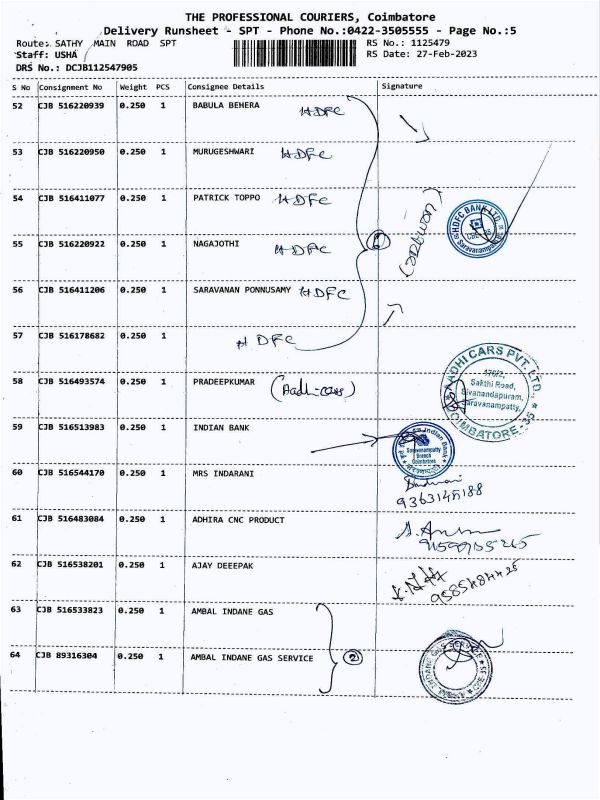 THE PROFESSIONAL COURIERS, Coimbatore
Delivery Runsheet - SPT - Phone No.:0422-3505555 - Page No.:5
Route: SATHY MAIN ROAD SPT
RS No.: 1125479
Staff: USHA
RS Date: 27-Feb-2023
DRS No.: DCJB112547905
S No Consignment No Weight PCS Consignee Details Signature
52 CJB 516220939 0.250 1 BABULA BEHERA HDFC
53 CJB 516220950 0.250 1 MURUGESHWARI HDFC
54 CJB 516411077 0.250 1 PATRICK TOPPO HDFC
HDFC BANK LTD.
Saravanampatti
55 CJB 516220922 0.250 1 NAGAJOTHI HDFC
56 CJB 516411206 0.250 1 SARAVANAN PONNUSAMY HDFC
57 CJB 516178682 0.250 1 HDFC
58 CJB 516493574 0.250 1 PRADEEPKUMAR (Aadhi-cars)
AADHI CARS PVT. LTD.,
Sakthi Road,
Sivanandapuram,
Saravanampatty,
COIMBATORE - 35
59 CJB 516513983 0.250 1 INDIAN BANK
Indian Bank
Saravanampatty
Branch
Coimbatore
60 CJB 516544170 0.250 1 MRS INDARANI
9363145188
61 CJB 516483084 0.250 1 ADHIRA CNC PRODUCT
62 CJB 516538201 0.250 1 AJAY DEEEPAK
63 CJB 516533823 0.250 1 AMBAL INDANE GAS
64 CJB 89316304 0.250 1 AMBAL INDANE GAS SERVICE 2
AMBAL INDANE GAS SERVICE